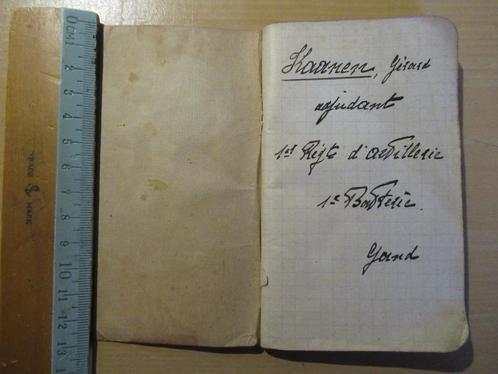 Kaanen, Gérard
adjudant
1er Régt d'artillerie
1e Batterie.
Gand
0 CM 1
2
3
4
5
6
7
8
9
10
11
12
13
TRADE MARK